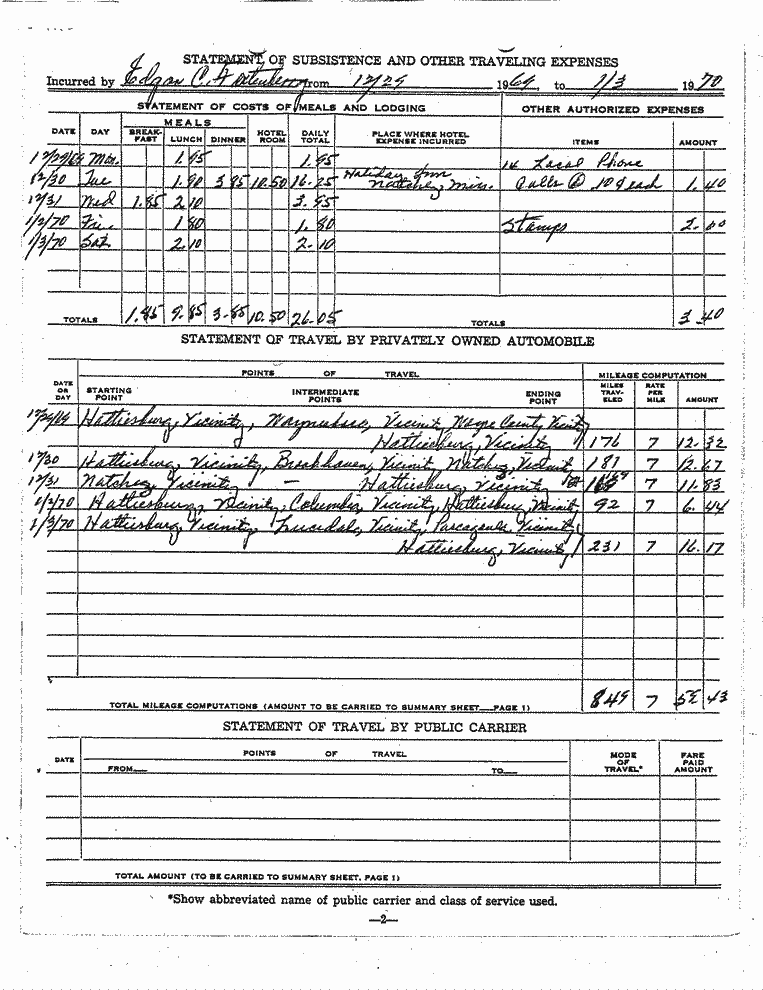 STATEMENT OF SUBSISTENCE AND OTHER TRAVELING EXPENSES
Incurred by Edgar C. Fortenberry from 12/29 1969, to 1/3 1970
STATEMENT OF COSTS OF MEALS AND LODGING OTHER AUTHORIZED EXPENSES
MEALS
DATE DAY BREAK-FAST LUNCH DINNER HOTEL ROOM DAILY TOTAL PLACE WHERE HOTEL EXPENSE INCURRED ITEMS AMOUNT
12/29/69 Mon. 1.95 1.95 14 Local Phone
12/30 Tue 1.90 3.85 10.50 16.25 Holiday Inn Natchez, Miss. Calls @ 10¢ each 1.40
12/31 Wed 1.85 2.10 3.95
1/2/70 Fri. 1.80 1.80 Stamps 2.00
1/3/70 Sat. 2.10 2.10
TOTALS 1.85 9.85 3.85 10.50 26.05 TOTALS 3.40
STATEMENT OF TRAVEL BY PRIVATELY OWNED AUTOMOBILE
POINTS OF TRAVEL MILEAGE COMPUTATION
DATE OR DAY STARTING POINT INTERMEDIATE POINTS ENDING POINT MILES TRAV-ELED RATE PER MILE AMOUNT
12/29/69 Hattiesburg, Vicinity, Waynesboro, Vicinity Wayne County, Vicinity
Hattiesburg, Vicinity 176 7 12.32
12/30 Hattiesburg, Vicinity, Brookhaven, Vicinity, Natchez, Vicinity 181 7 12.67
12/31 Natchez, Vicinity — Hattiesburg, Vicinity 169 7 11.83
1/2/70 Hattiesburg, Vicinity, Columbia, Vicinity, Hattiesburg, Vicinity 92 7 6.44
1/3/70 Hattiesburg, Vicinity, Lucedale, Vicinity, Pascagoula, Vicinity
Hattiesburg, Vicinity 231 7 16.17
TOTAL MILEAGE COMPUTATIONS (AMOUNT TO BE CARRIED TO SUMMARY SHEET—PAGE 1) 849 7 59.43
STATEMENT OF TRAVEL BY PUBLIC CARRIER
DATE POINTS OF TRAVEL MODE OF TRAVEL* FARE PAID AMOUNT
FROM— TO—
TOTAL AMOUNT (TO BE CARRIED TO SUMMARY SHEET, PAGE 1)
*Show abbreviated name of public carrier and class of service used.
—2—